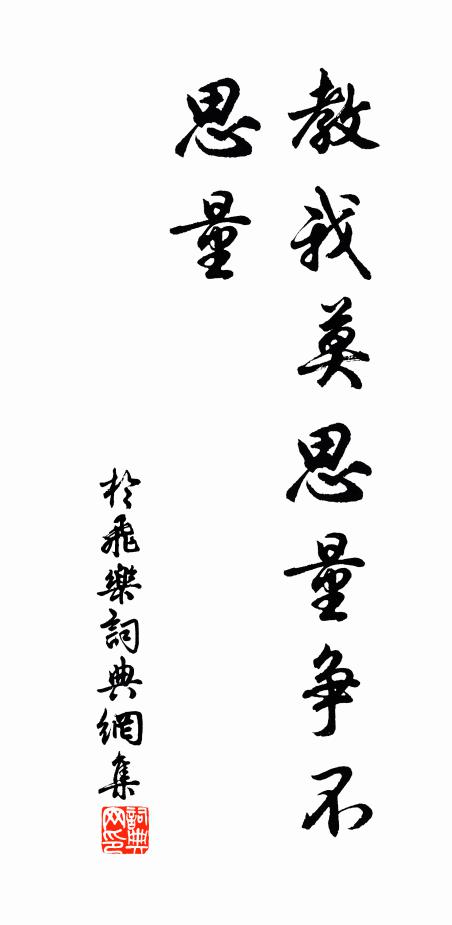 教我莫思量争不
思量
於飛樂詞典網集
詞典网印